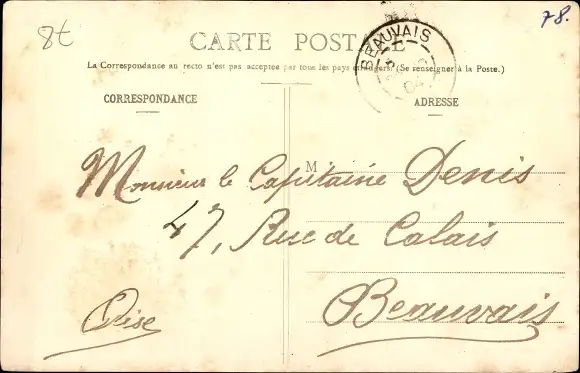 8t
78.
CARTE POSTALE
BEAUVAIS
La Correspondance au recto n'est pas acceptée par tous les pays étrangers. (Se renseigner à la Poste.)
CORRESPONDANCE
ADRESSE
M
Monsieur le Capitaine Denis
47, Rue de Calais
Beauvais
Oise